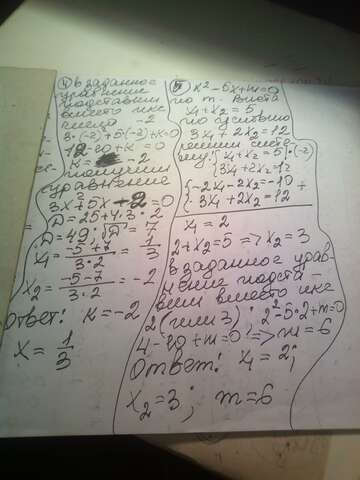 ④ в заданное
уравнение
подставим
вместо икс
числа -2
3·(-2)+5·(-2)+к=0
12-10+к=0
к= -2
получим
уравнение
3х+5х-2=0
D=25+4·3·2
D=49; √D=7
x₁=(-5+7)/(3·2)=1/3
x₂=(-5-7)/(3·2)=-2
Ответ: к=-2
x=1/3
⑤ x²-5x+m=0
по т. Виета
x₁+x₂=5
по условию
3x₁+2x₂=12
решим систе
му: {x₁+x₂=5|·(-2)
{3x₁+2x₂=12
{-2x₁-2x₂=-10 +
{3x₁+2x₂=12
x₁=2
2+x₂=5=>x₂=3
в заданное урав-
нение подста-
вим вместо икс
2(или 3): 2²-5·2+m=0
4-10+m=0=>m=6
Ответ: x₁=2;
x₂=3; m=6